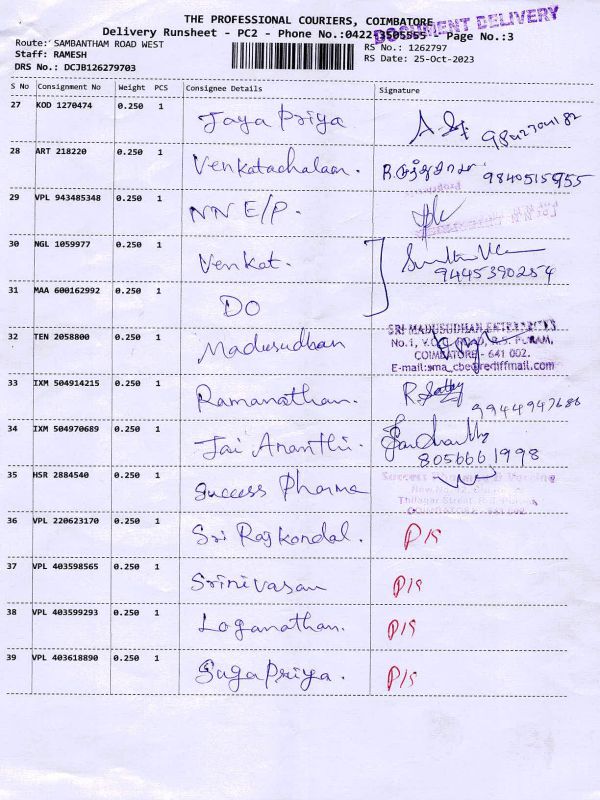 THE PROFESSIONAL COURIERS, COIMBATORE
DOCUMENT DELIVERY
Delivery Runsheet - PC2 - Phone No.:0422-3505555 - Page No.:3
Route: SAMBANTHAM ROAD WEST
RS No.: 1262797
Staff: RAMESH
RS Date: 25-Oct-2023
DRS No.: DCJB126279703
S No Consignment No Weight PCS Consignee Details Signature
27 KOD 1270474 0.250 1 Jaya Priya
28 ART 218220 0.250 1 Venkatachalam. 9840515955
29 VPL 943485348 0.250 1 NN E/P.
30 NGL 1059977 0.250 1 Venkat. 9445390254
31 MAA 600162992 0.250 1 DO
32 TEN 2058800 0.250 1 Madusudhan
SRI MADUSUDHAN ENTERPRISES
No.1, ROAD, R.S. PURAM,
COIMBATORE - 641 002.
E-mail:sma_cbe@rediffmail.com
33 IXM 504914215 0.250 1 Ramanathan. 9944947688
34 IXM 504970689 0.250 1 Jai Ananthi. 8056661998
35 HSR 2884540 0.250 1 Success Pharma
Success
36 VPL 220623170 0.250 1 Sri Ragkondal. P15
37 VPL 403598565 0.250 1 Srinivasan P15
38 VPL 403599293 0.250 1 Loganathan. P15
39 VPL 403618890 0.250 1 Sugapriya. P15